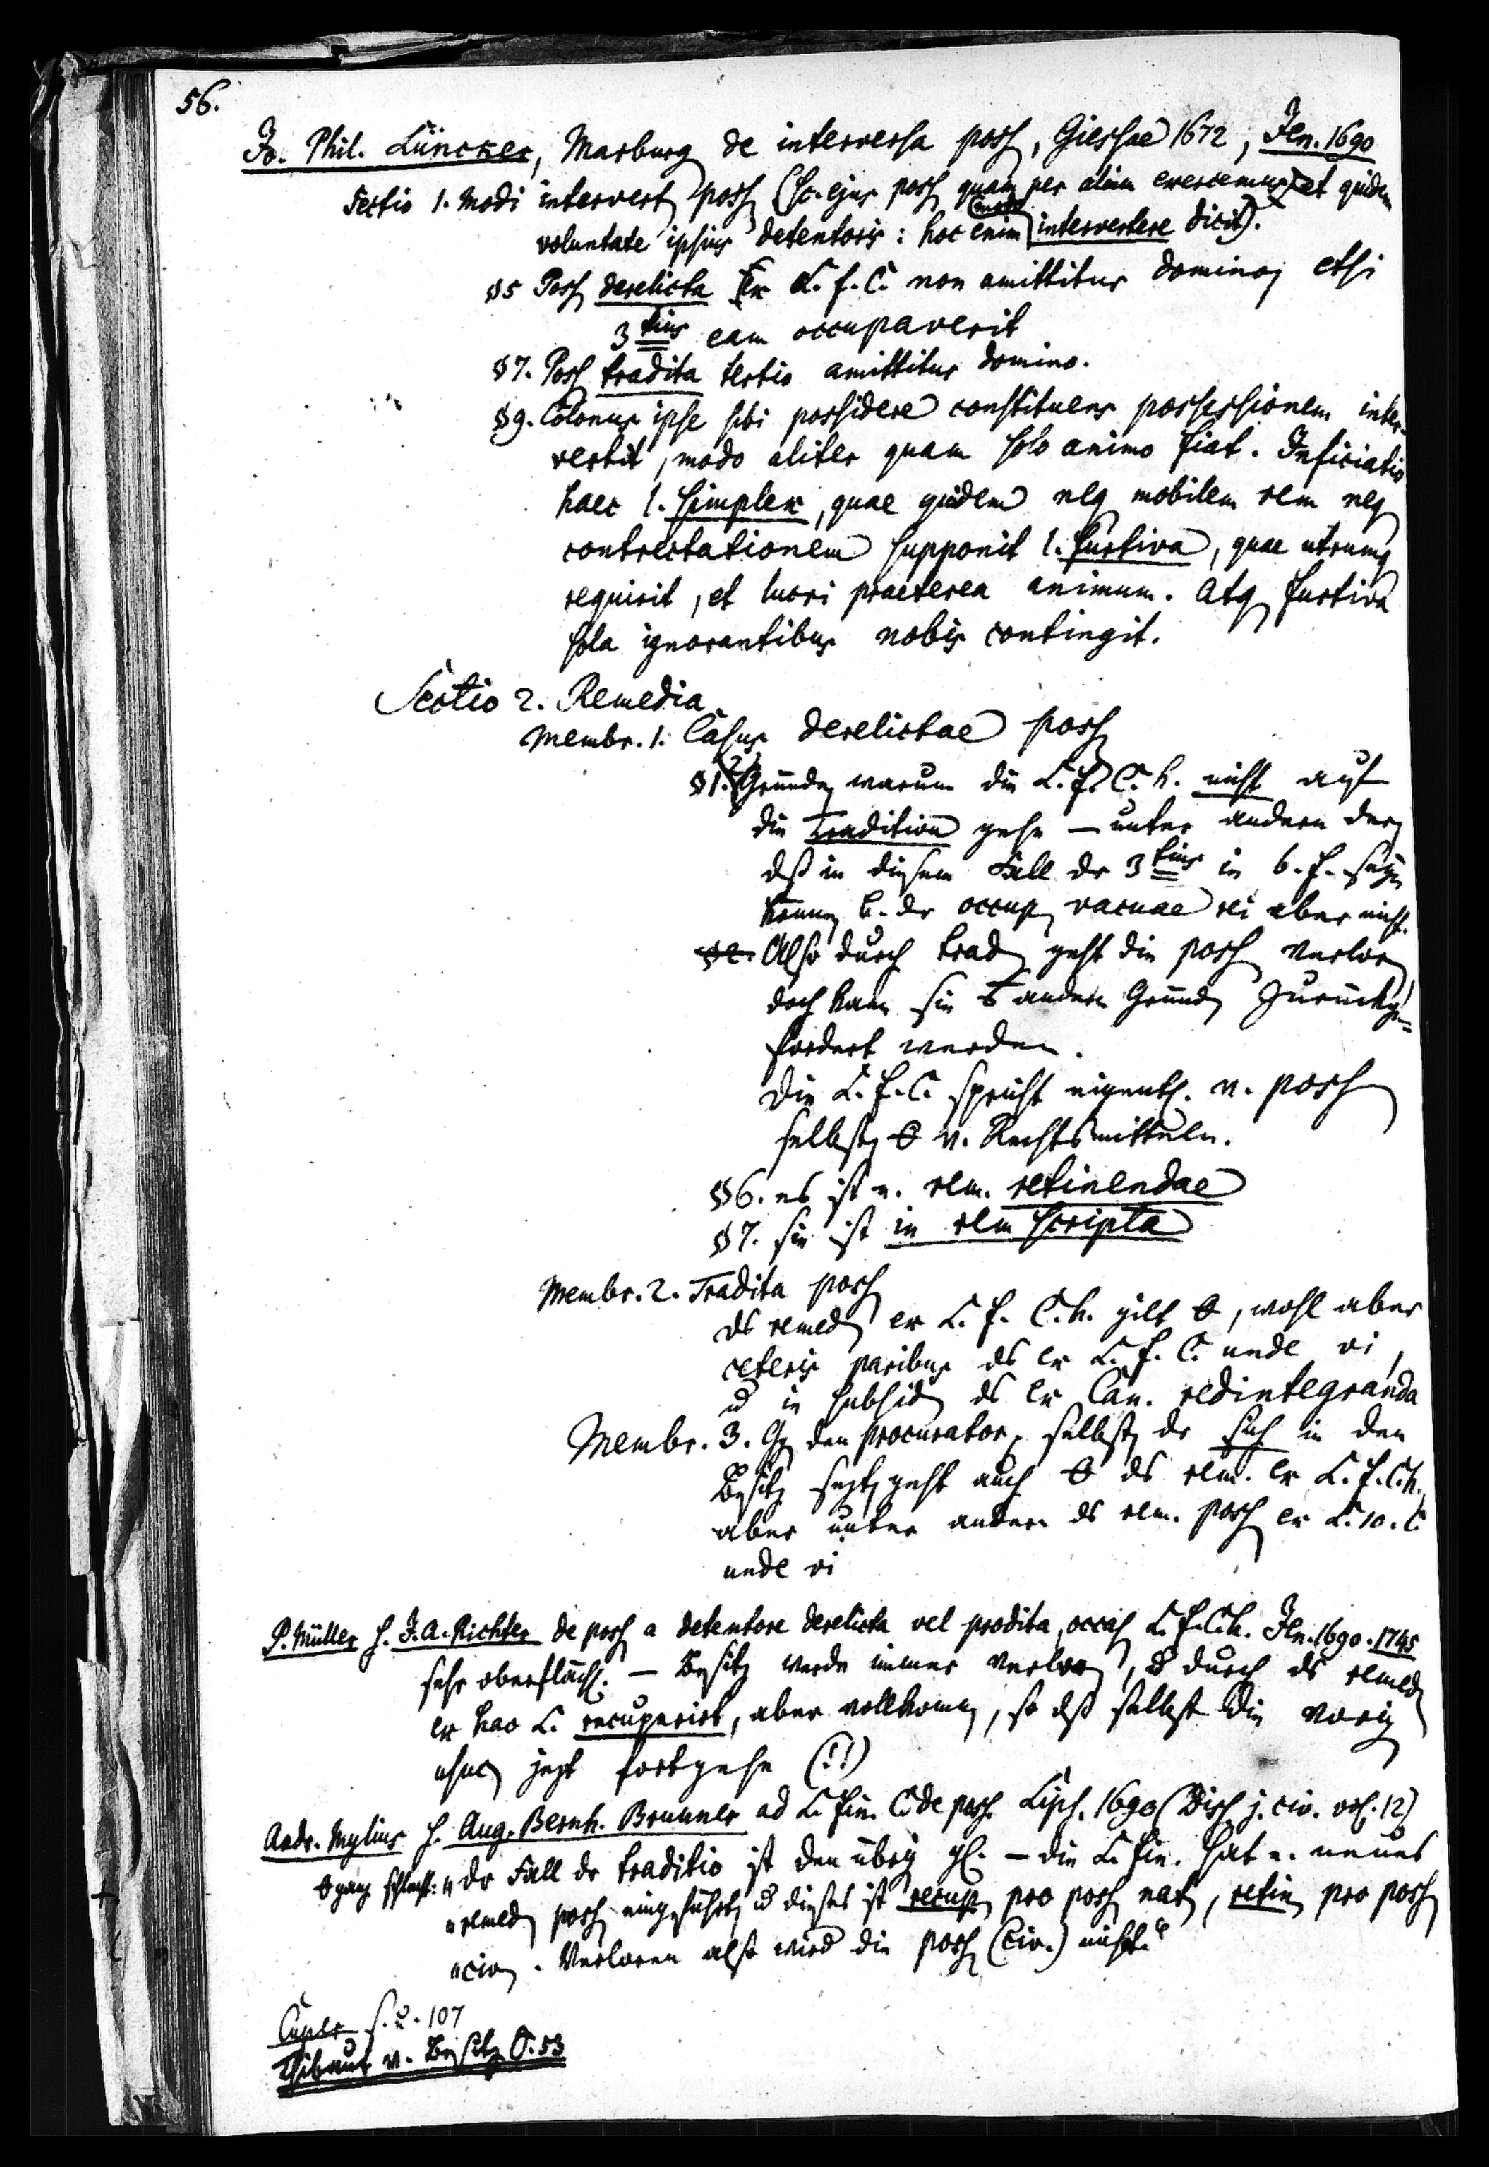 56.
Jo. Phil. Lüncker, Marburg de interversa poss, Giessae 1672, Jen. 1690
Sectio 1. Modi intervert poss (sc. ejus poss quam per alium exercemus) et quidem
voluntate ipsius detentoris: hoc enim modo intervertere dicit).
§5 Poss derelicta Ex L. f. C. non amittitur domino, etsi
3tius eam occupaverit
§7. Poss tradita tertio amittitur domino.
§9. Colonus ipse sibi possidere constituens possessionem inter-
vertit, modo aliter quam solo animo fiat. Inficiatio
haec 1. simplex, quae quidem neq mobilem rem neq
contrectationem supponit 1. furtiva, quae utrumq
requirit, et lucri praeterea animum. Atq furtiva
sola ignorantibus nobis contingit.
Sectio 2. Remedia
Membr. 1. Casus derelictae poss
§1. Gründe warum die L. f. C. h. nicht auf
die Tradition gehe – unter andern der,
dß in diesem Fall dr 3tius in b. f. seyn
könne b. dr occup vacuae rei aber nicht.
§2. Also durch trad geht die poss verlor,
doch kann sie andern Gründ zurückge-
fordert werden.
Die L. f. C. spricht eigentl. v. poss
selbst v. Rechtsmitteln.
§6. es ist e. rem. retinendae
§7. sie ist in rem scripta
Membr. 2. Tradita poss
ds remed ex L. f. C. h. gilt, wohl aber
ceteris paribus ds ex L. f. C. unde vi,
u in subsid ds ex Can. redintegranda
Membr. 3. Gg den procurator selbst dr sich in den
Besitz setzt geht auch ds rem. ex L. f. C. h.
aber unter andern ds rem. poss ex L. 10. C.
unde vi
P. Müller s. J. A. Richter de poss a detentore derelicta vel prodita, occas L. f. C. h. Jen. 1690. 1745
sehr oberflächl. – Besitz werde immer verlor, durch ds remed
ex hac L. recuperirt, aber vollkomm, so dß selbst die vorig
usuc jezt fortgehe (!!)
Andr. Mylius s. Aug. Bernh. Brunner ad L. fin. C. de poss. Lips. 1690 (Diss j. civ. vol. 12)
ganz schlecht: "dr Fall dr traditio ist den übrig gl. – die L. fin. hat e. neues
"remed poss eingeführt u dieses ist recup pro poss nat, retin pro poss
"civ. Verloren also wird die poss (civ.) nicht."
Cuper S. 2. 107
Thibaut v. Besitz S. 53